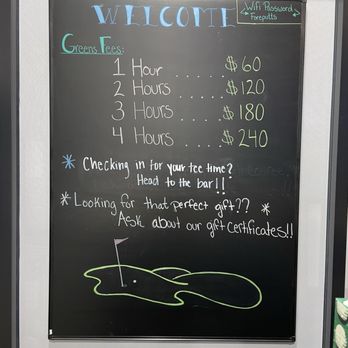 WELCOME
Wifi Password
Foreputts
Greens Fees:
1 Hour ..... $60
2 Hours .... $120
3 Hours .... $180
4 Hours .... $240
* Checking in for your tee time?
Head to the bar!!
* Looking for that perfect gift?? *
Ask about our gift certificates!!